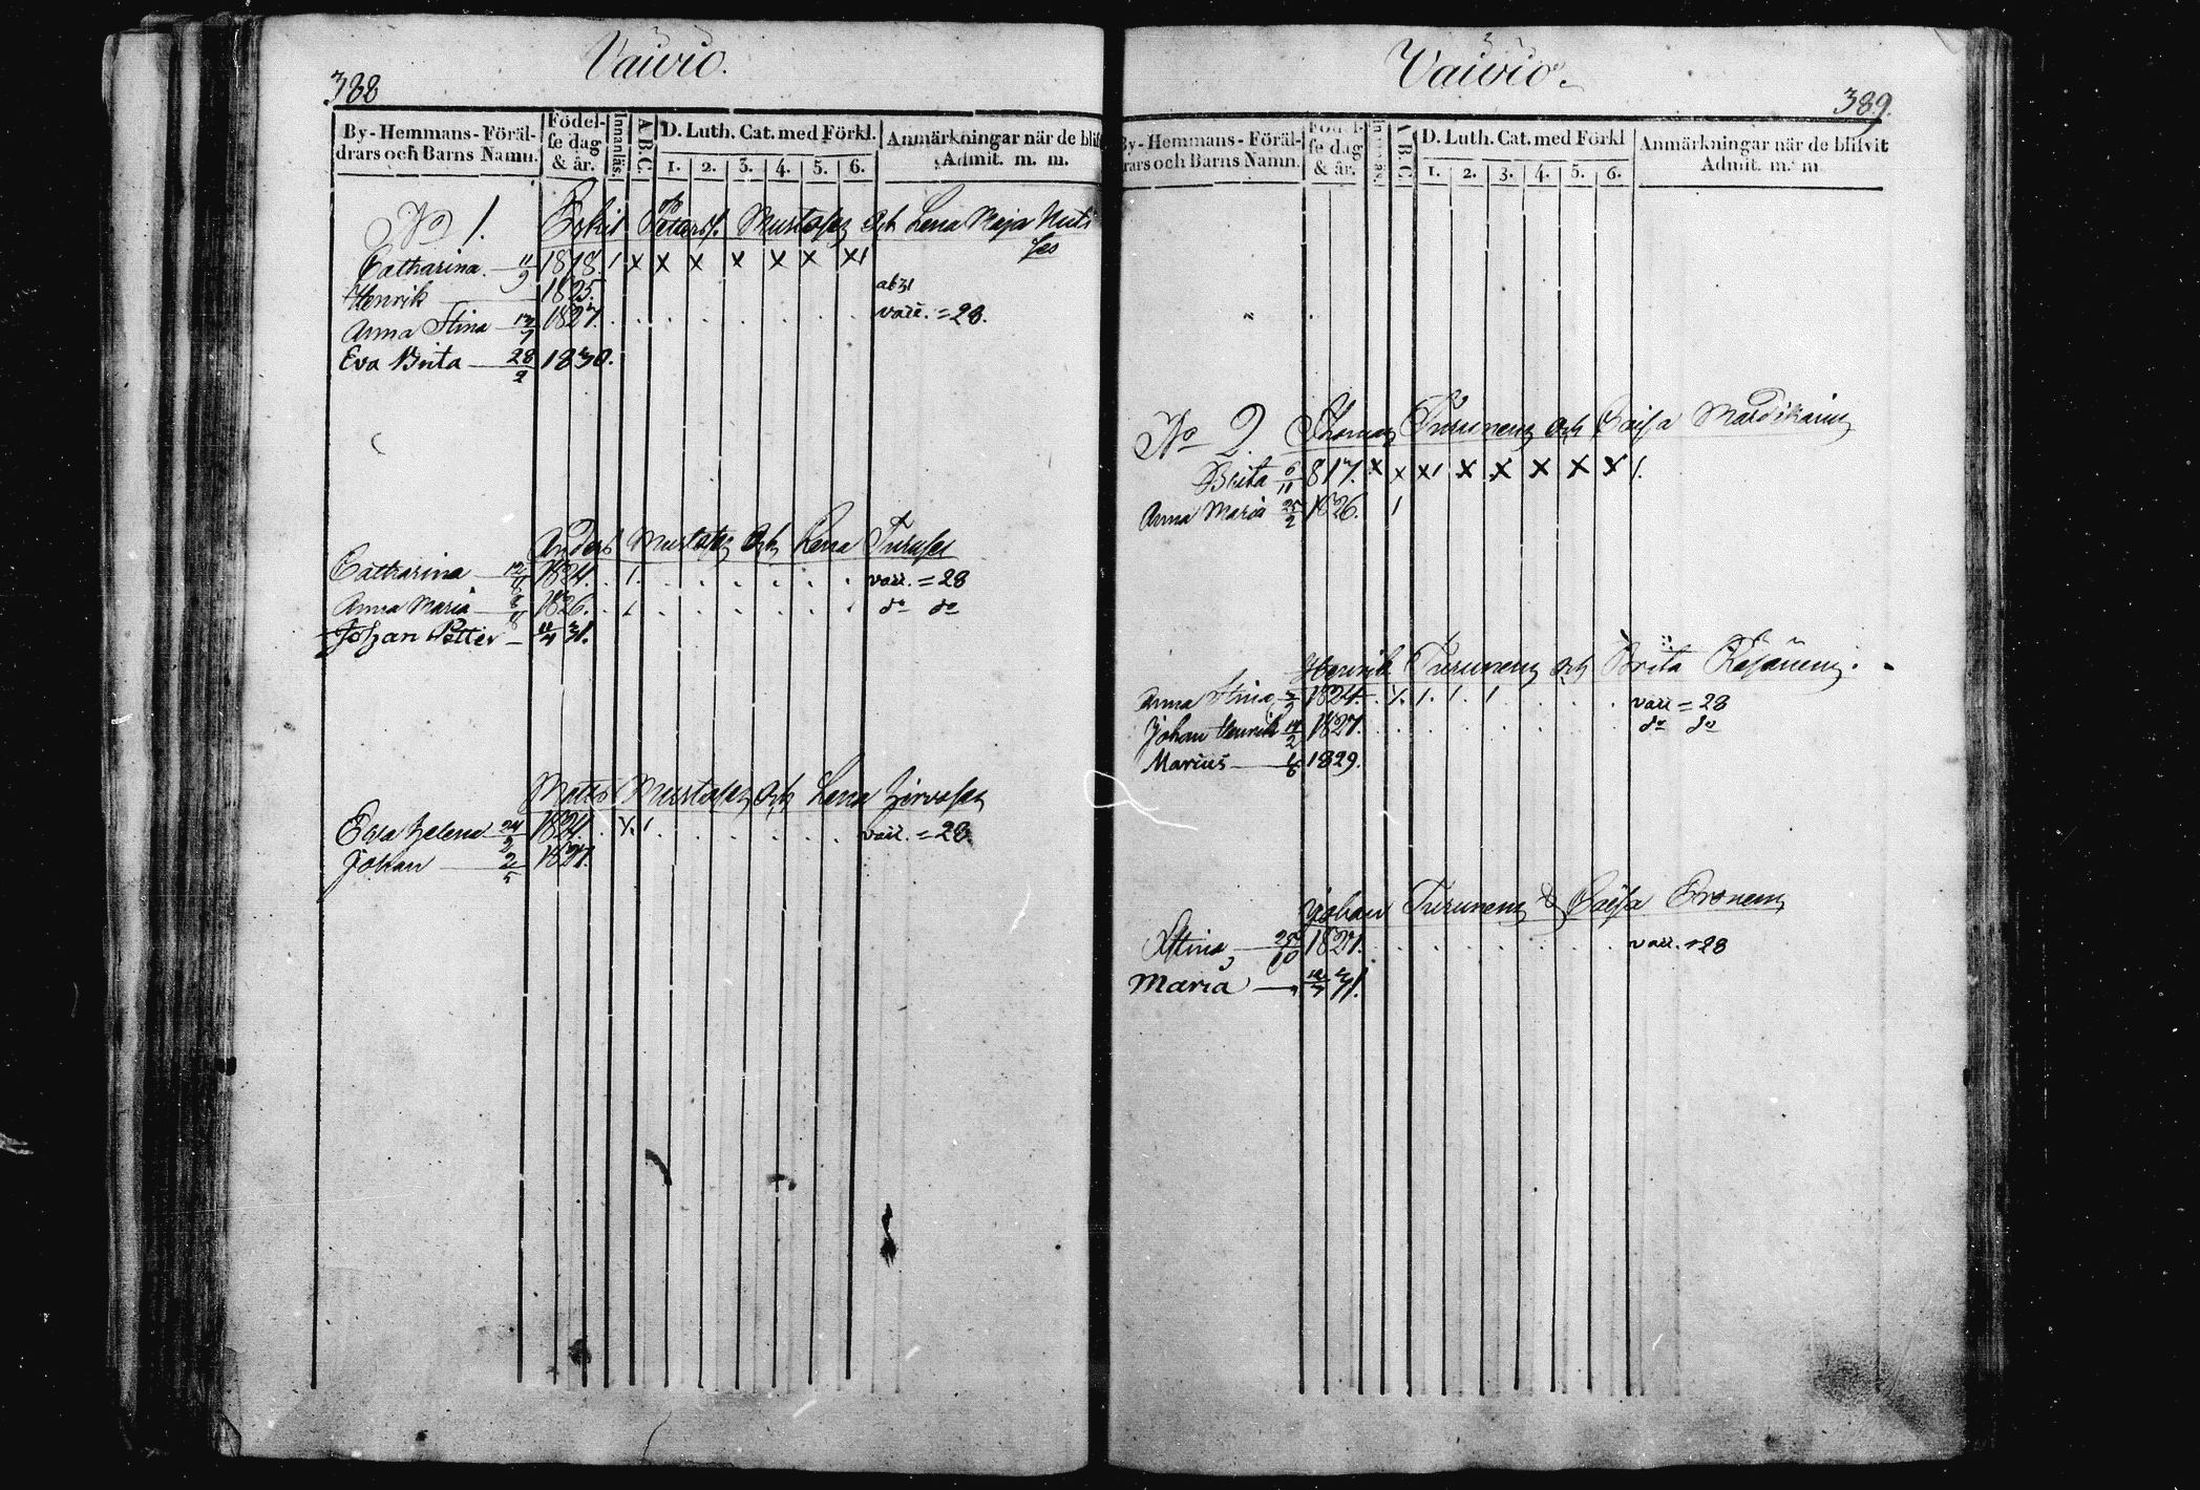 388
Vaivio.
By-Hemmans-Föräl-
drars och Barns Namn.
Födel-
se dag
& år.
Innanläs.
A.B.C.
D. Luth. Cat. med Förkl.
1. 2. 3. 4. 5. 6.
Anmärkningar när de blif
Admit. m. m.
No 1. Eskil Petterss. Mustosen och Lena Maja
Catharina. 11/9 1818. 1 x x x x x x x1
Henrik 1825. ab31
Anna Stina 13/7 1827. vacc. = 28.
Eva Brita 28/2 1830.
Anders Mustosen och Lena Turusen
Catharina 1824. 1. vacc. = 28
Anna Maria 1826. do do
Johan Petter 31.
Matts Mustosen och Lena
Eva Helena 24/3 1824. x. 1 vacc. = 28.
Johan 2/5 1827.
Vaivio.
389.
By-Hemmans-Föräl-
rars och Barns Namn.
Födel-
se dag
& år.
A.B.C.
D. Luth. Cat. med Förkl
1. 2. 3. 4. 5. 6.
Anmärkningar när de blifvit
Admit. m. m
No 2. Thomas Turunen och Caisa
Brita 6/11 817. x x x1 x x x x x 1.
Anna Maria 25/2 1826. 1
Henrik Turunen och Brita Räsänen.
Anna Stina 1824. x. 1. 1. 1 vacc = 28
Johan Henrik 14/2 1827. do do
Marius 1829.
Johan Turunen & Caisa
Stina 25/10 1827. vacc. = 28
Maria 31.